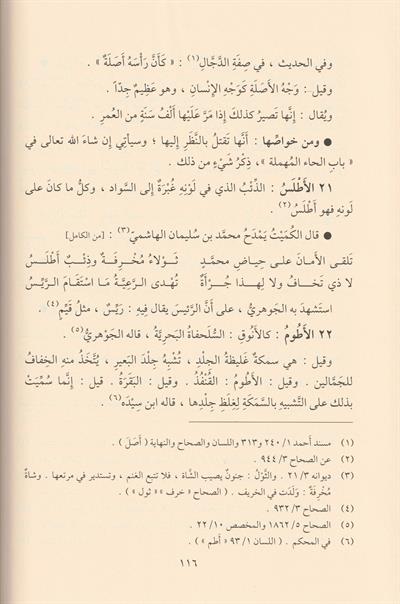 وفي الحديث ، في صِفَةِ الدَّجَّالِ(١) : « كَأَنَّ رَأْسَهُ أَصَلَةٌ » .
وقيل : وَجْهُ الأَصَلَةِ كَوَجْهِ الإِنْسانِ ، وهو عَظِيمٌ جِدّاً .
ويُقال : إِنَّها تَصيرُ كذلكَ إِذا مَرَّ عَلَيْها أَلْفُ سَنَةٍ من العُمرِ .
● ومن خواصِّها : أَنَّها تَقتلُ بالنَّظَرِ إليها ؛ وسيأتي إن شاءَ الله تعالى في
« باب الحاء المهملة »، ذِكْرُ شَيْءٍ من ذلك .
٢١ الأَطْلَسُ : الذِّئْبُ الذي في لَوْنِهِ غُبْرَةٌ إلى السَّواد ، وكلُّ ما كانَ على
لونه فهو أَطْلَسُ(٢) .
● قال الكُمَيْتُ يَمْدَحُ محمَّد بن سُليمان الهاشميّ(٣) : [من الكامل]
تَلقى الأَمانَ على حِياضِ محمَّدٍ ثَوْلاءُ مُخْرِفَةٌ وذِئْبٌ أَطْلَسُ
لا ذي تَخافُ ولا لِهذا جُرْأَةٌ تُهْدى الرَّعِيَّةُ مَا اسْتَقامَ الرَّيِّسُ
استَشهدَ به الجوهريُّ ، على أَنَّ الرَّئيسَ يقال فيه : رَيِّسٌ ، مثلُ قَيِّمٍ(٤) .
٢٢ الأَطُومُ : كالأَنُوقِ : السُّلَحفاةُ البَحرِيَّةُ ، قاله الجَوْهَريُّ(٥)
وقيل : هي سمكةٌ غَليظةُ الجِلْدِ ، تُشْبِهُ جِلْدَ البَعيرِ ، يُتَّخَذُ منه الخِفافُ
للجَمَّالين . وقيل : الأَطُومُ : القُنْفُذُ . وقيل : البَقَرَةُ . قيل : إِنَّما سُمِّيَتْ
بذلك على التَّشبيهِ بالسَّمَكَةِ لِغِلَظِ جِلْدِها ، قاله ابن سِيْدَه(٦) .
(١) مسند أحمد ١/ ٢٤٠ و٣١٣ واللسان والصحاح والنهاية ( أَصَلَ ) .
(٢) عن الصحاح ٣/ ٩٤٤ .
(٣) ديوانه ٣/ ٢١ . والثَّوَلُ : جنونٌ يصيب الشَّاة ، فلا تتبع الغنم ، وتستدير في مرتعها . وشاةٌ
مُخْرِفَةٌ : وَلَدَت في الخريف . ( الصحاح « خرف » « ثول » ) .
(٤) الصحاح ٣/ ٩٣٢ .
(٥) الصحاح ٥/ ١٨٦٢ والمخصص ١٠/ ٢٢ .
(٦) في المحكم . ( اللسان ١/ ٩٣ « أطم » ) .
١١٦